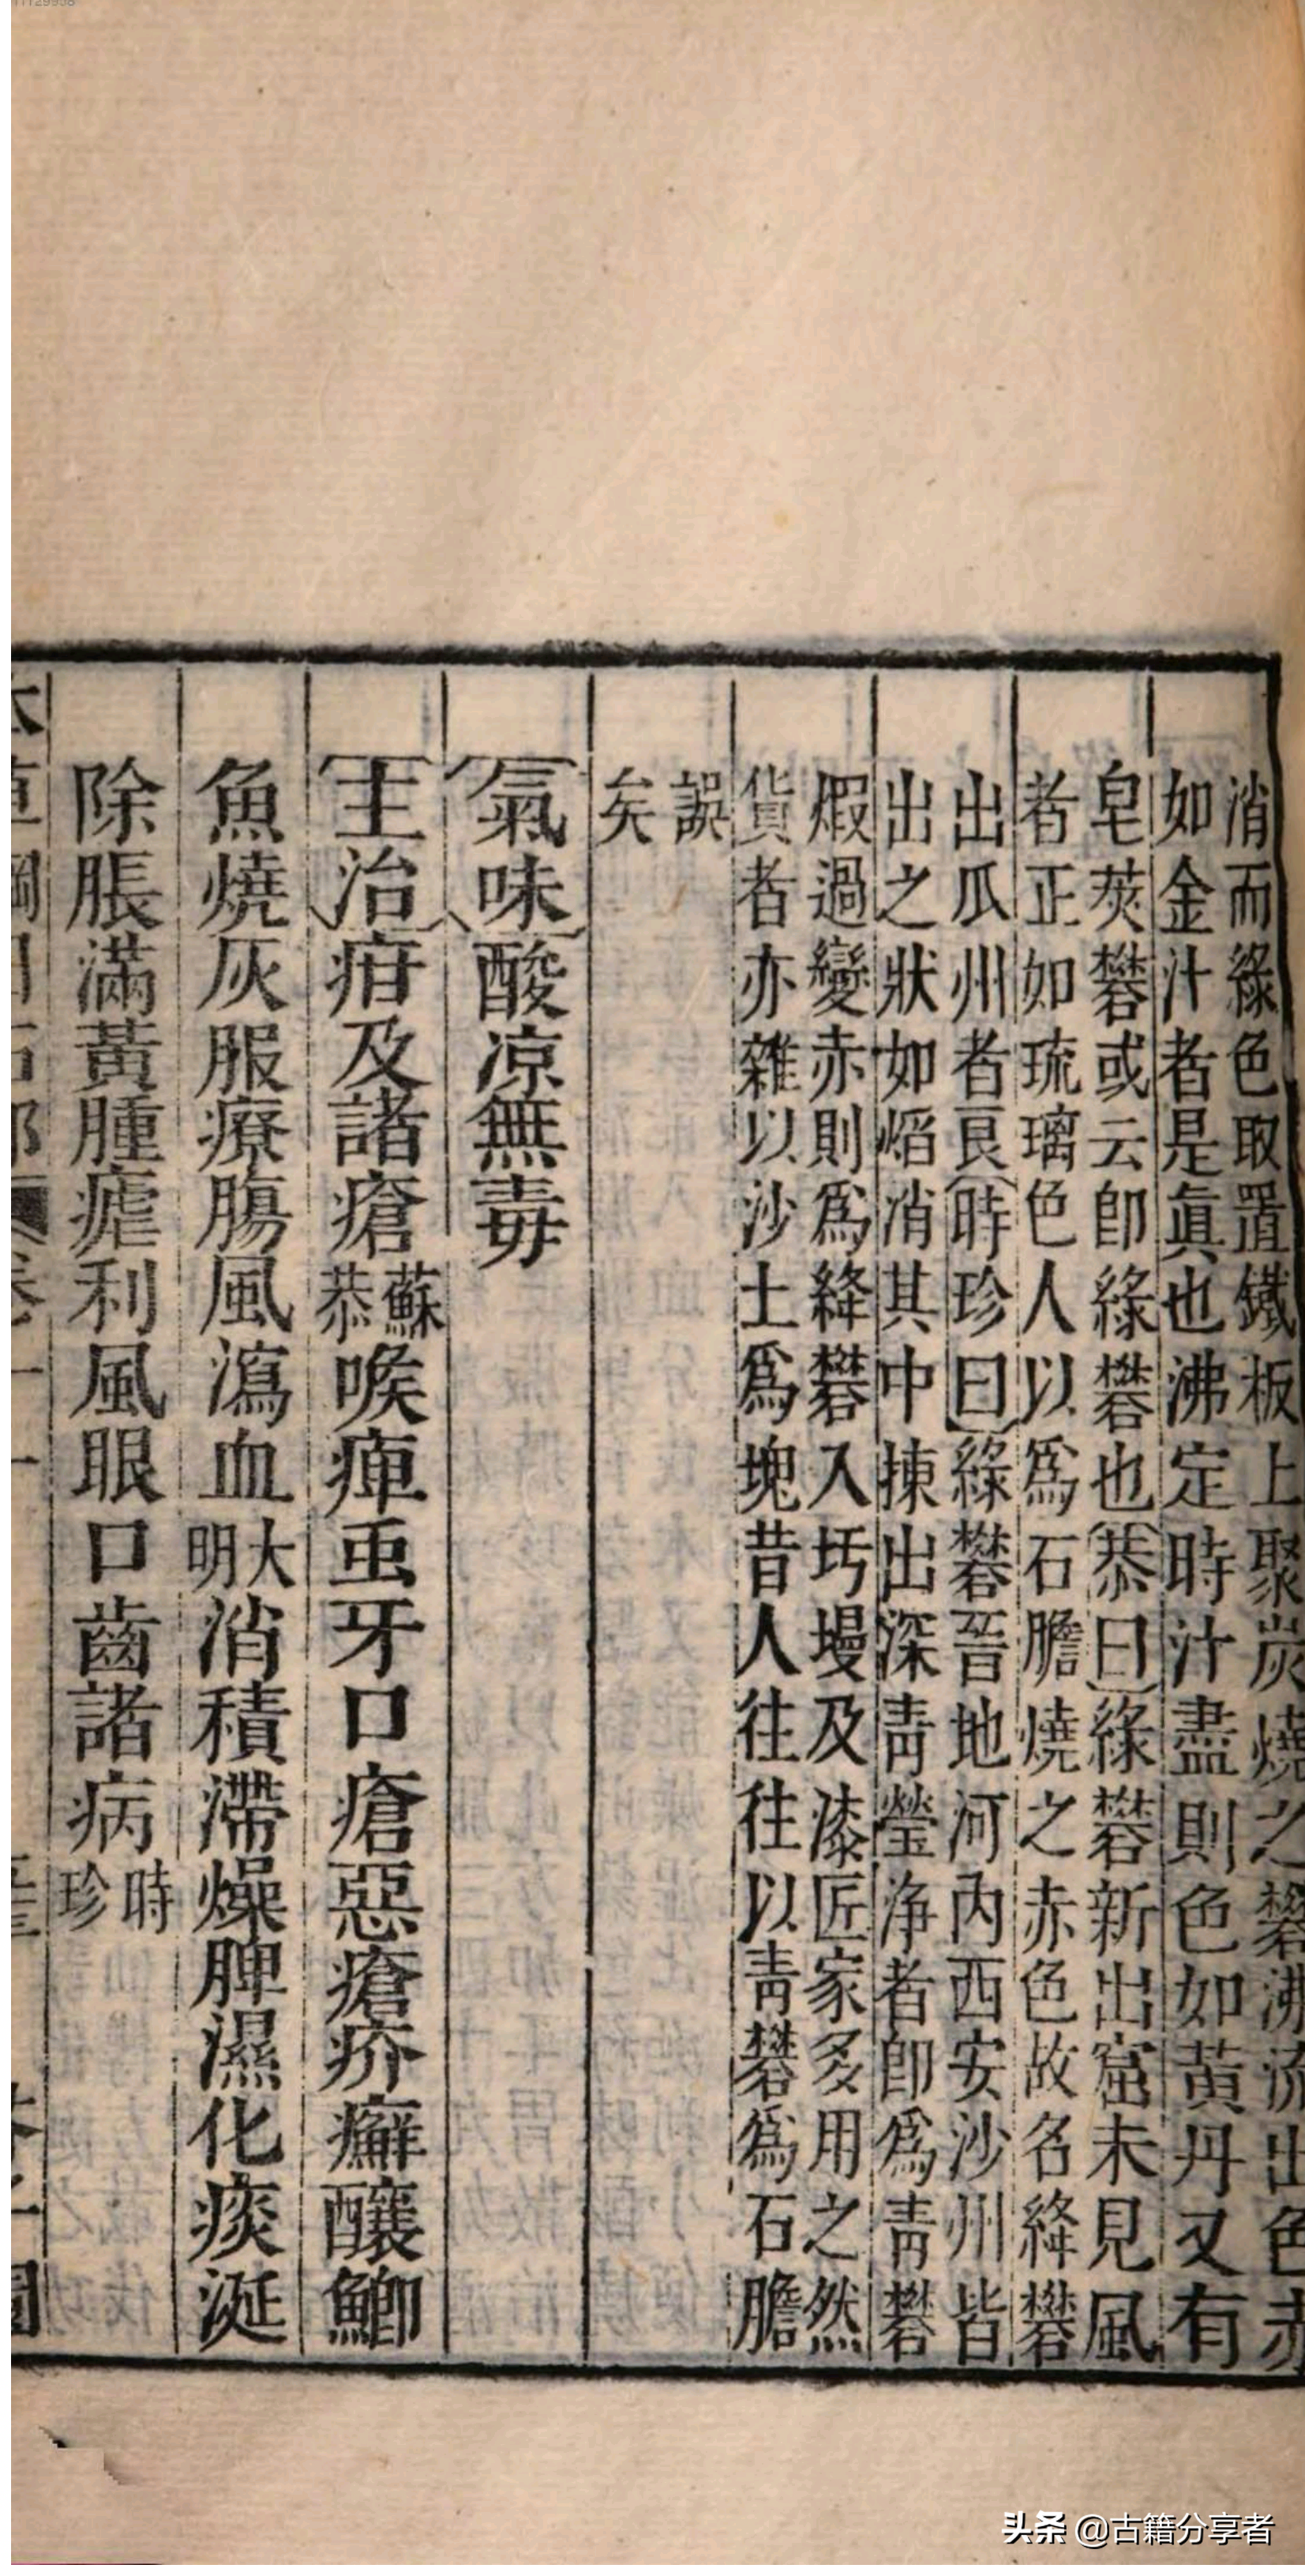 消而綠色取置鐵板上聚炭燒之礬沸流出色赤
如金汁者是眞也沸定時汁盡則色如黃丹又有
皂莢礬或云卽綠礬也恭曰綠礬新出窟未見風
者正如琉璃色人以爲石膽燒之赤色故名絳礬
出瓜州者良時珍曰綠礬晉地河內西安沙州皆
出之狀如焰消其中揀出深靑瑩淨者卽爲靑礬
煅過變赤則爲絳礬入圬墁及漆匠家多用之然
貨者亦雜以沙土爲塊昔人往往以靑礬爲石膽
誤
矣
氣味酸凉無毒
主治疳及諸瘡蘇恭喉痺䖝牙口瘡惡瘡疥癬釀鯽
魚燒灰服療腸風瀉血大明消積滯燥脾濕化痰涎
除脹滿黃腫瘧利風眼口齒諸病時珍
头条 @古籍分享者